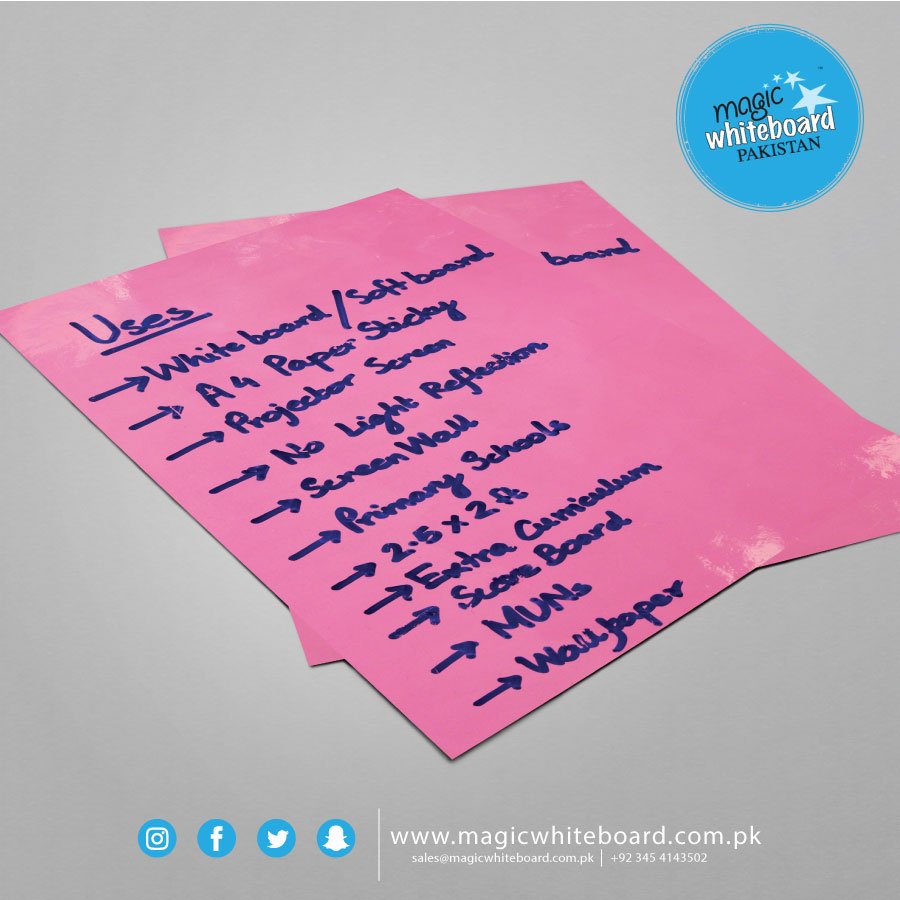 magic
whiteboard
PAKISTAN
™
board
Uses
→ White board / Soft board
→ A4 Paper Sticky
→ Projector Screen
→ No Light Reflection
→ Screen Wall
→ Primary Schools
→ 2.5 x 2 ft
→ Extra Curriculum
→ Score Board
→ MUNs
→ Wallpaper
www.magicwhiteboard.com.pk
sales@magicwhiteboard.com.pk | +92 345 4143502